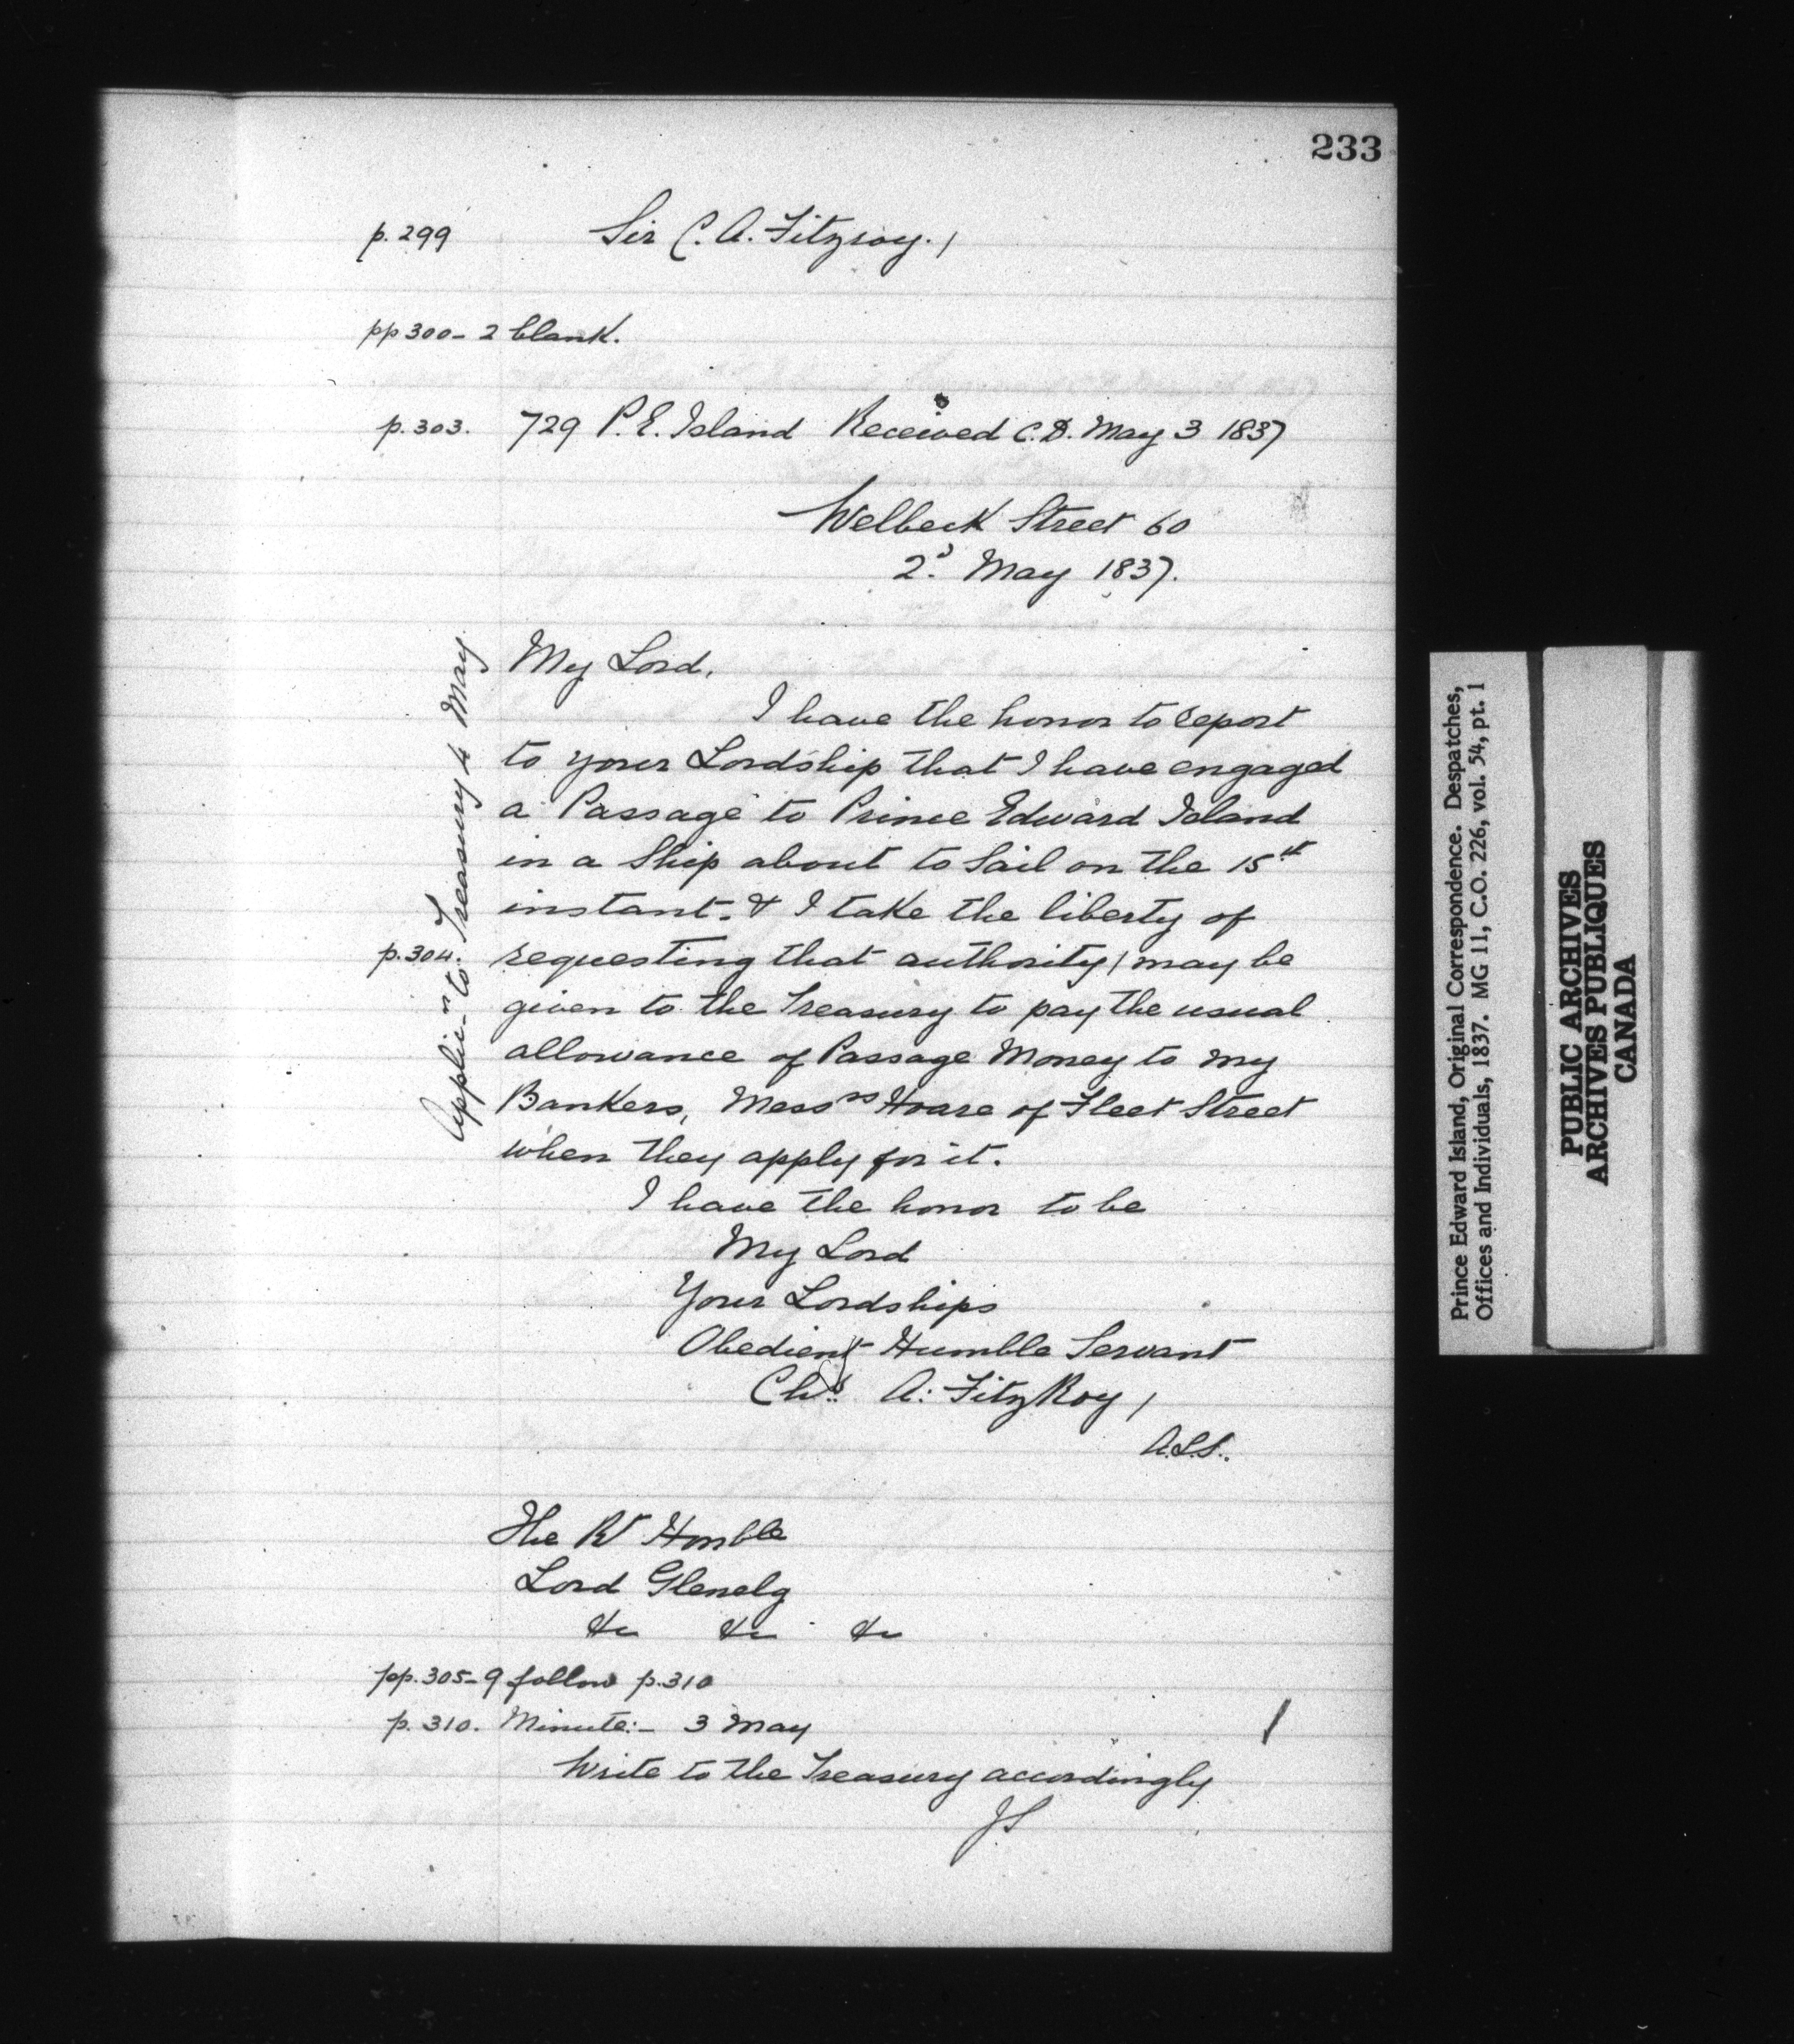 233
p. 299 Sir C. A. Fitzroy. /
pp 300-2 blank.
p. 303. 729 P. E. Island Received C.D. May 3 1837
Welbeck Street 60
2d. May 1837.
My Lord,
I have the honor to report
to your Lordship that I have engaged
a Passage to Prince Edward Island
in a Ship about to Sail on the 15th
instant. & I take the liberty of
p. 304. requesting that authority / may be
given to the Treasury to pay the usual
allowance of Passage Money to my
Bankers, Messrs Hoare of Fleet Street
when they apply for it.
I have the honor to be
My Lord
Your Lordships
Obedient Humble Servant
Chs. A: FitzRoy /
A.L.S.
Applicn to Treasury 4 May.
The Rt Honble
Lord Glenelg
&c &c &c
pp. 305-9 follow p. 310
p. 310. Minute:- 3 May /
Write to the Treasury accordingly
JS
Prince Edward Island, Original Correspondence. Despatches,
Offices and Individuals, 1837. MG 11, C.O. 226, vol. 54, pt. 1
PUBLIC ARCHIVES
ARCHIVES PUBLIQUES
CANADA